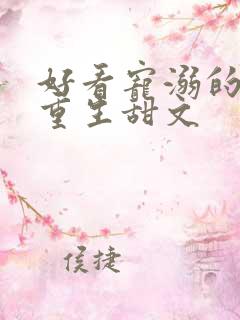 好看寵溺的
重生甜文
侯捷